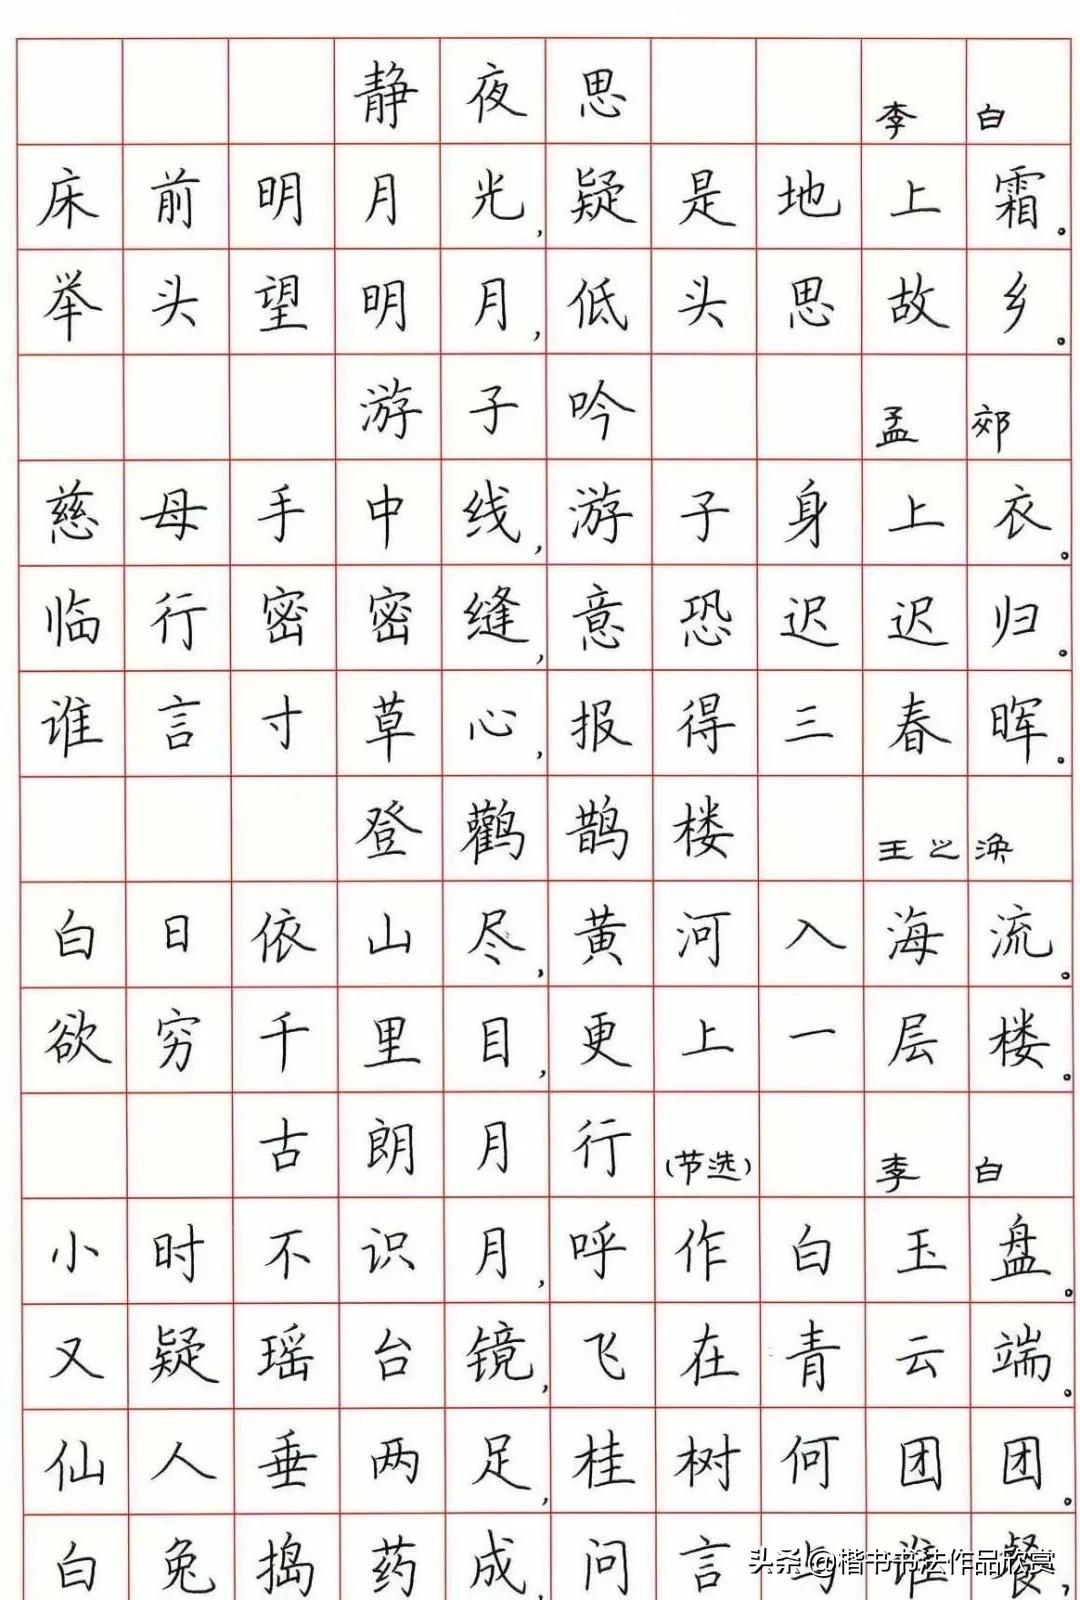 静夜思 李白
床前明月光,疑是地上霜。
举头望明月,低头思故乡。
游子吟 孟郊
慈母手中线,游子身上衣。
临行密密缝,意恐迟迟归。
谁言寸草心,报得三春晖。
登鹳鹊楼 王之涣
白日依山尽,黄河入海流。
欲穷千里目,更上一层楼。
古朗月行(节选) 李白
小时不识月,呼作白玉盘。
又疑瑶台镜,飞在青云端。
仙人垂两足,桂树何团团。
白兔捣药成,问言与谁餐,
头条@楷书书法作品欣赏